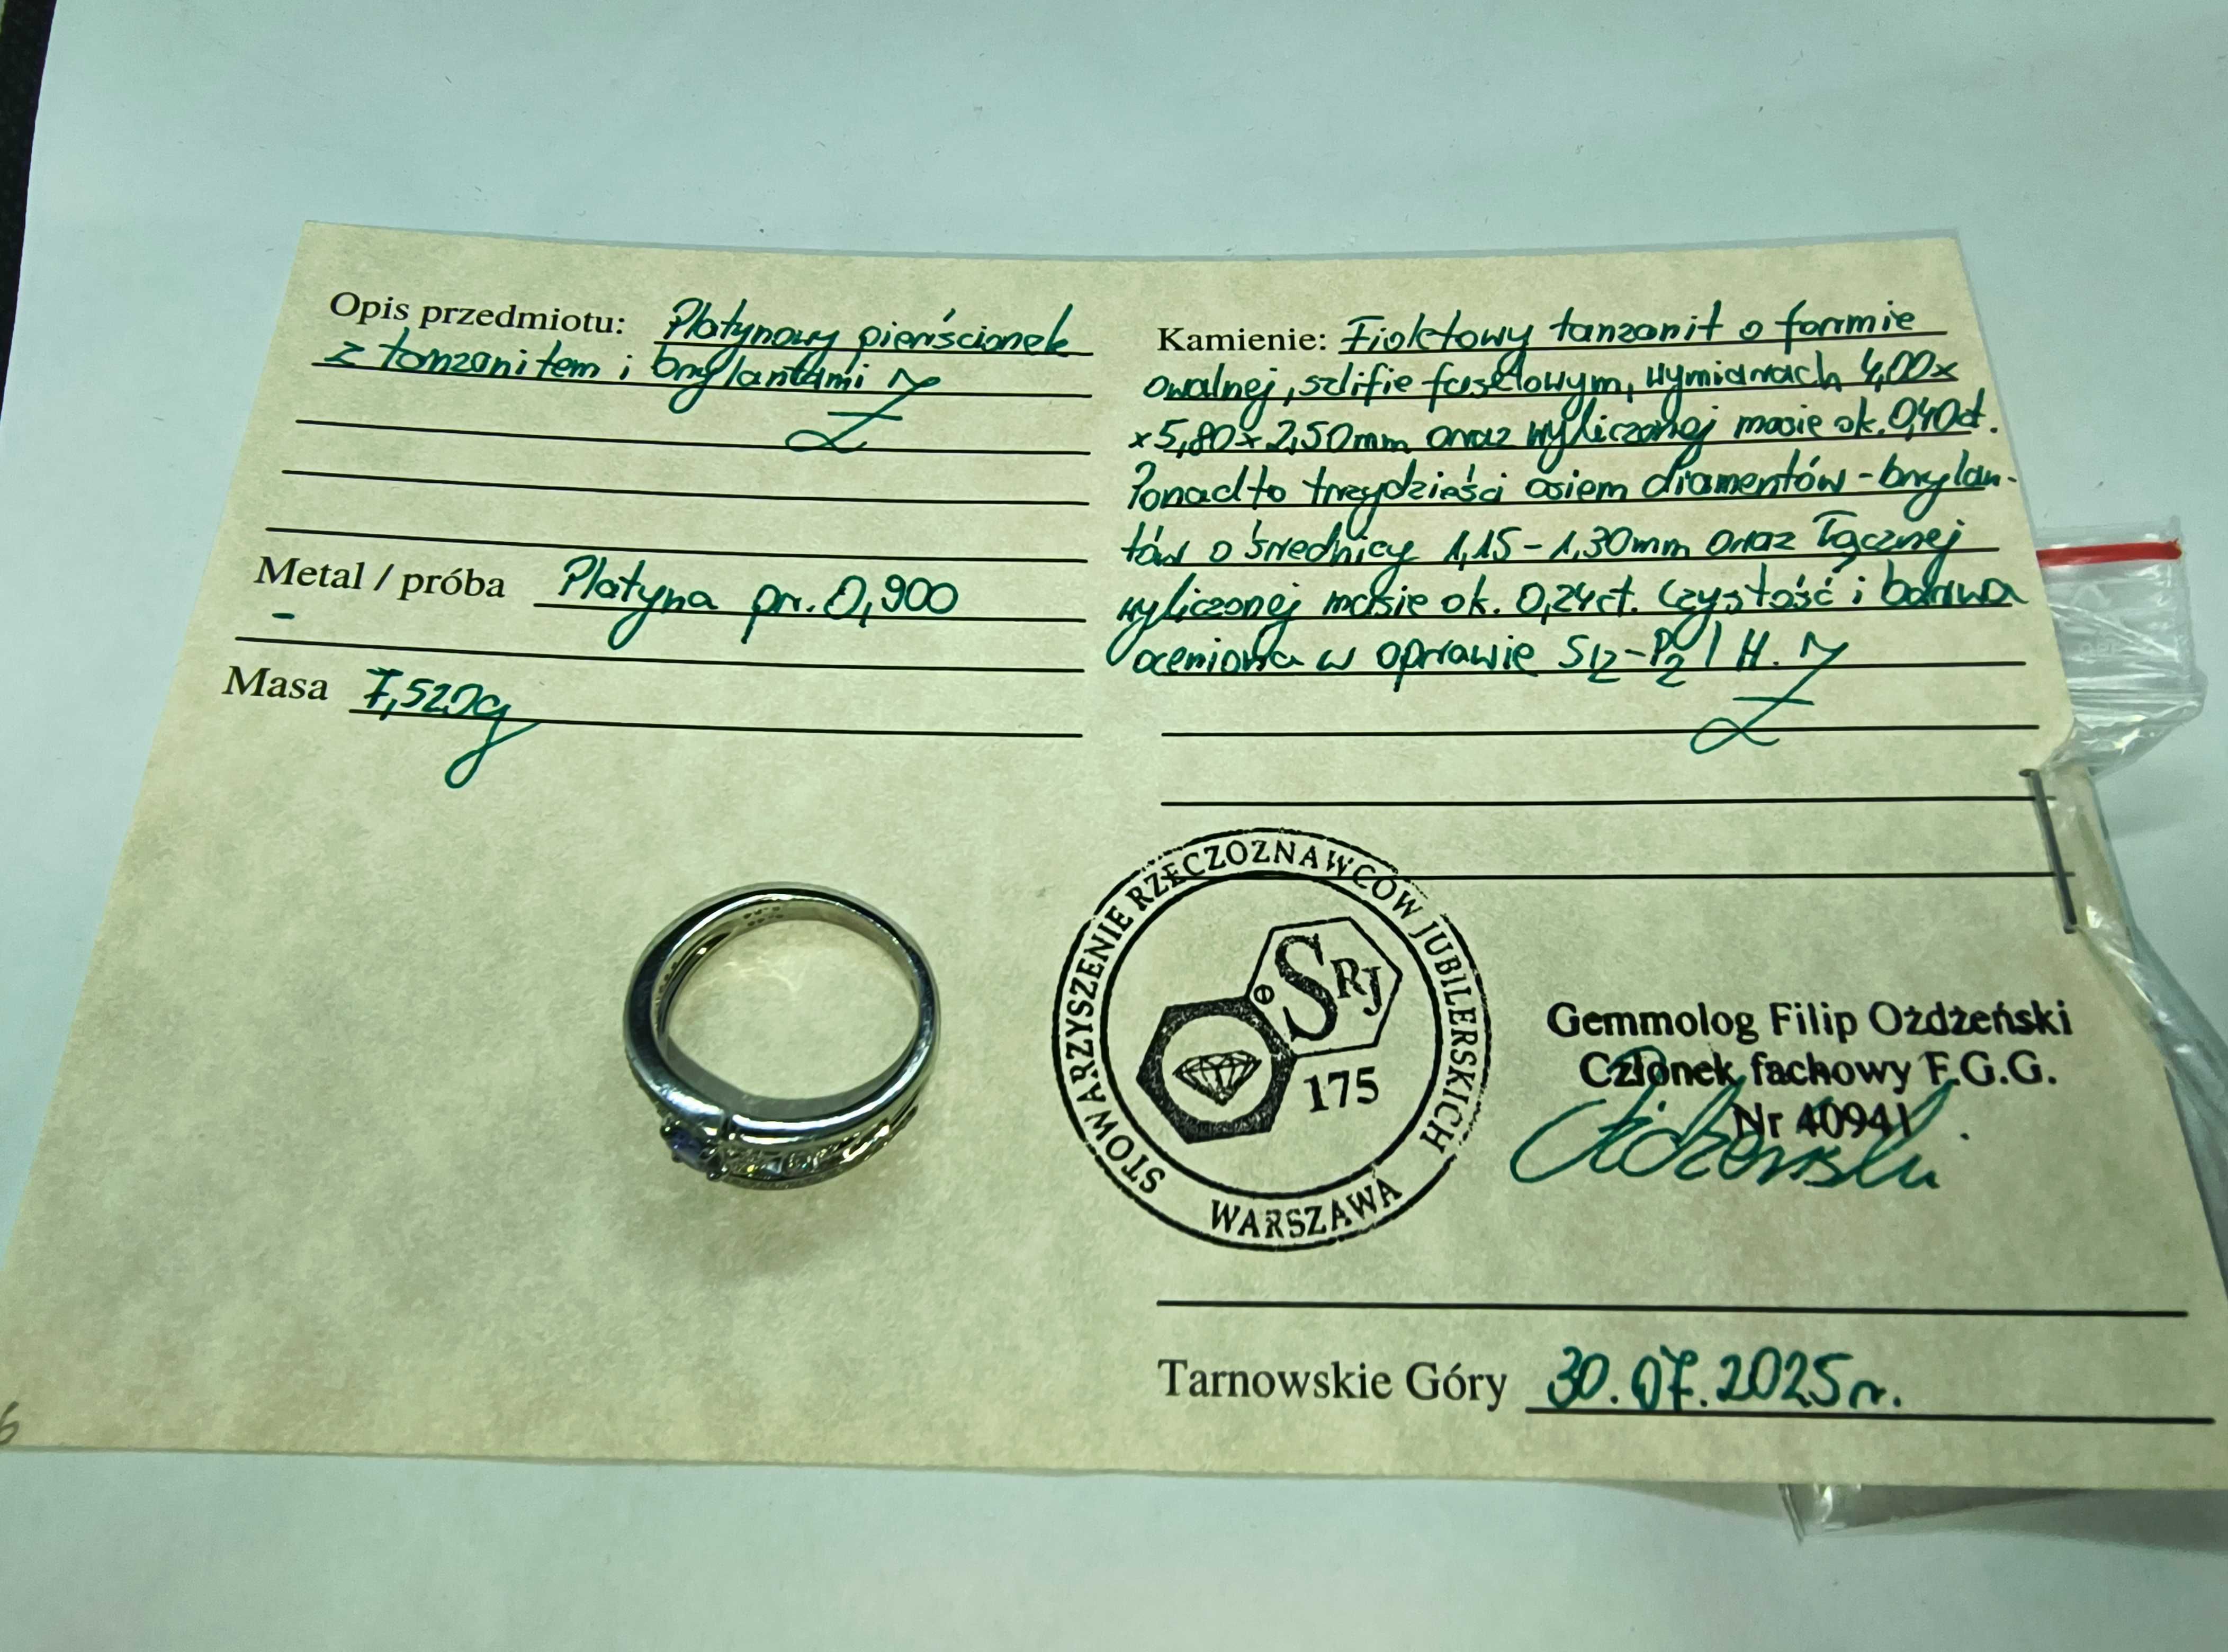 Opis przedmiotu: Platynowy pierścionek
z tanzanitem i brylantami
Metal / próba Platyna pr. 0,900
-
Masa 7,520g
Kamienie: Fioletowy tanzanit o formie
owalnej, szlifie fasetowym, wymiarach 4,00x
x5,80x2,50mm oraz wyliczonej masie ok. 0,40ct.
Ponadto trzydzieści osiem diamentów-brylan-
tów o średnicy 1,15-1,30mm oraz łącznej
wyliczonej masie ok. 0,24ct. Czystość i barwa
oceniona w oprawie SI2-P2/H.
STOWARZYSZENIE RZECZOZNAWCÓW JUBILERSKICH
SRJ
175
WARSZAWA
Gemmolog Filip Ożdżeński
Członek fachowy F.G.G.
Nr 40941
Tarnowskie Góry 30.07.2025r.
6